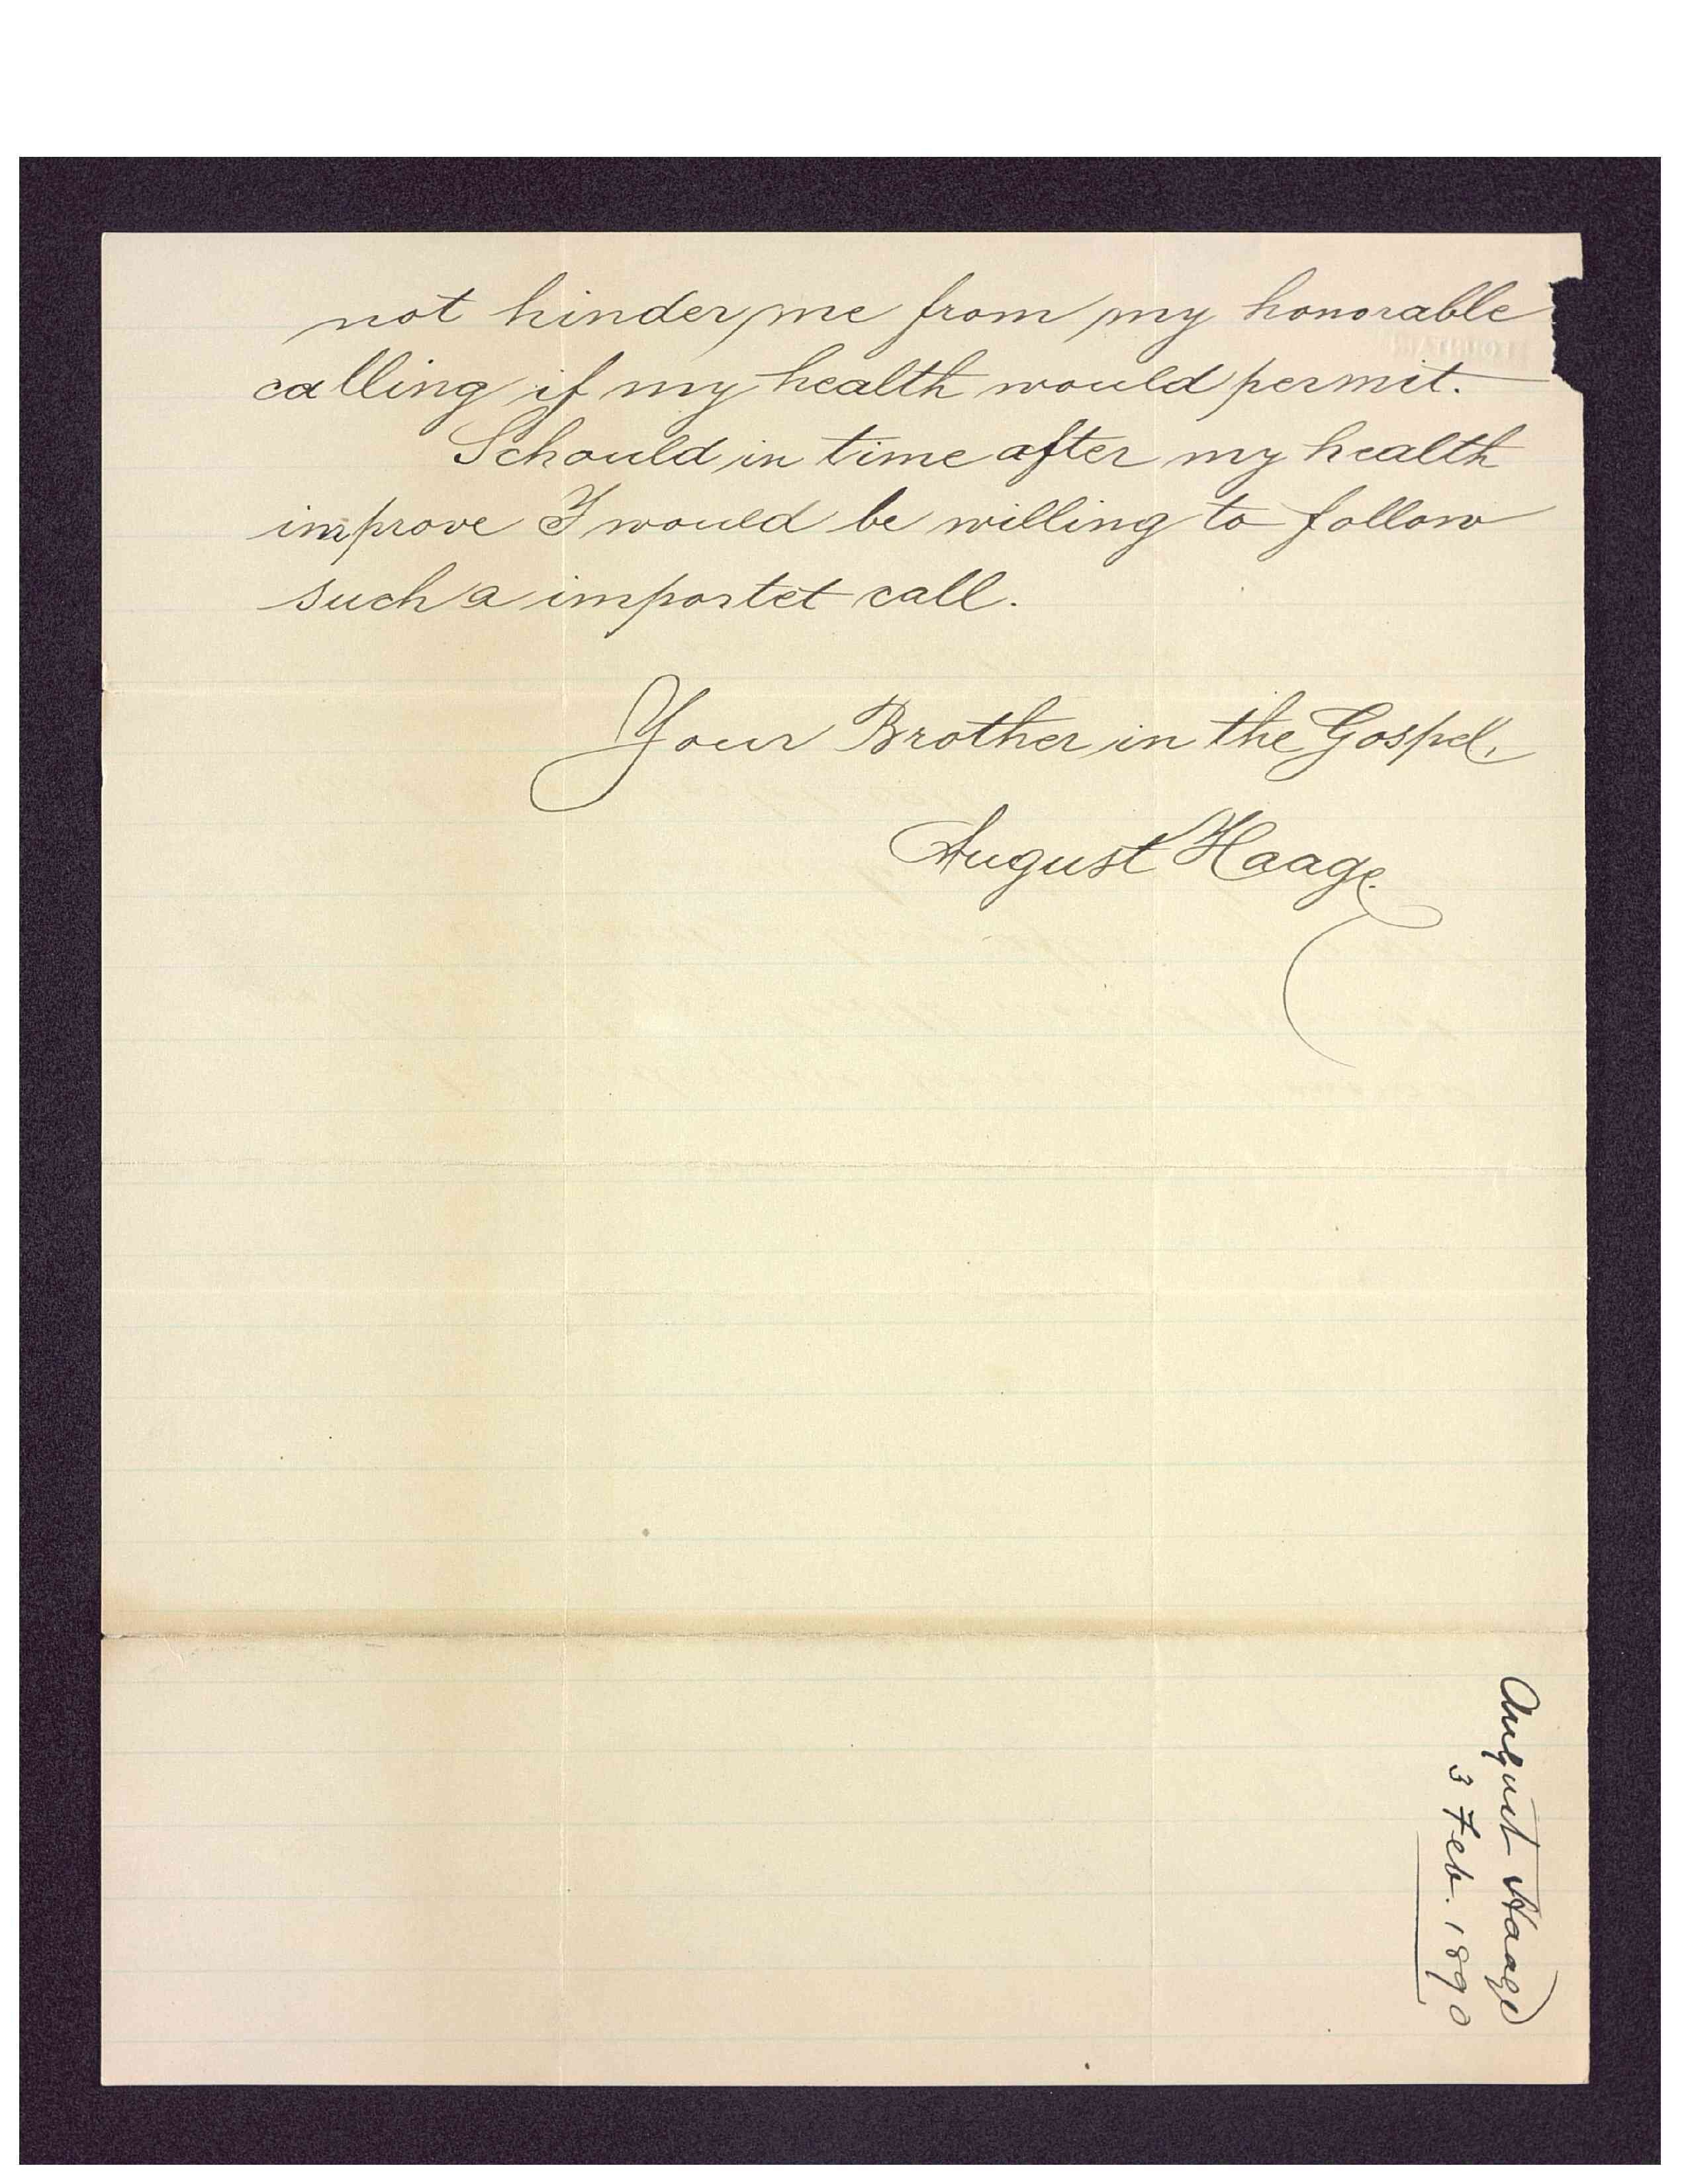 not hinder me from my honorable
calling if my health would permit.
Schould in time after my health
improve I would be willing to follow
such a importet call.
Your Brother in the Gospel,
August Haage.
August Haage
3 Feb. 1890